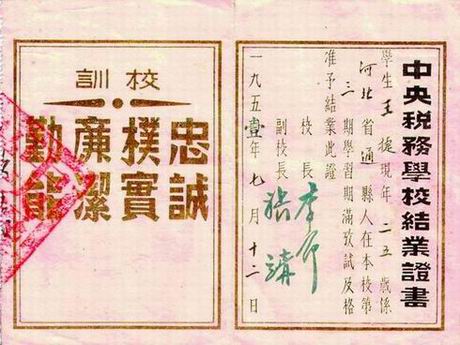 中央税務學校結業證書
學生王現年二五歲係
河北省通縣人在本校第
三期學習期滿攷試及格
准予結業此證
校長 李
副校長 張
一九五壹年七月十二日
校訓
忠誠
樸實
廉潔
勤能